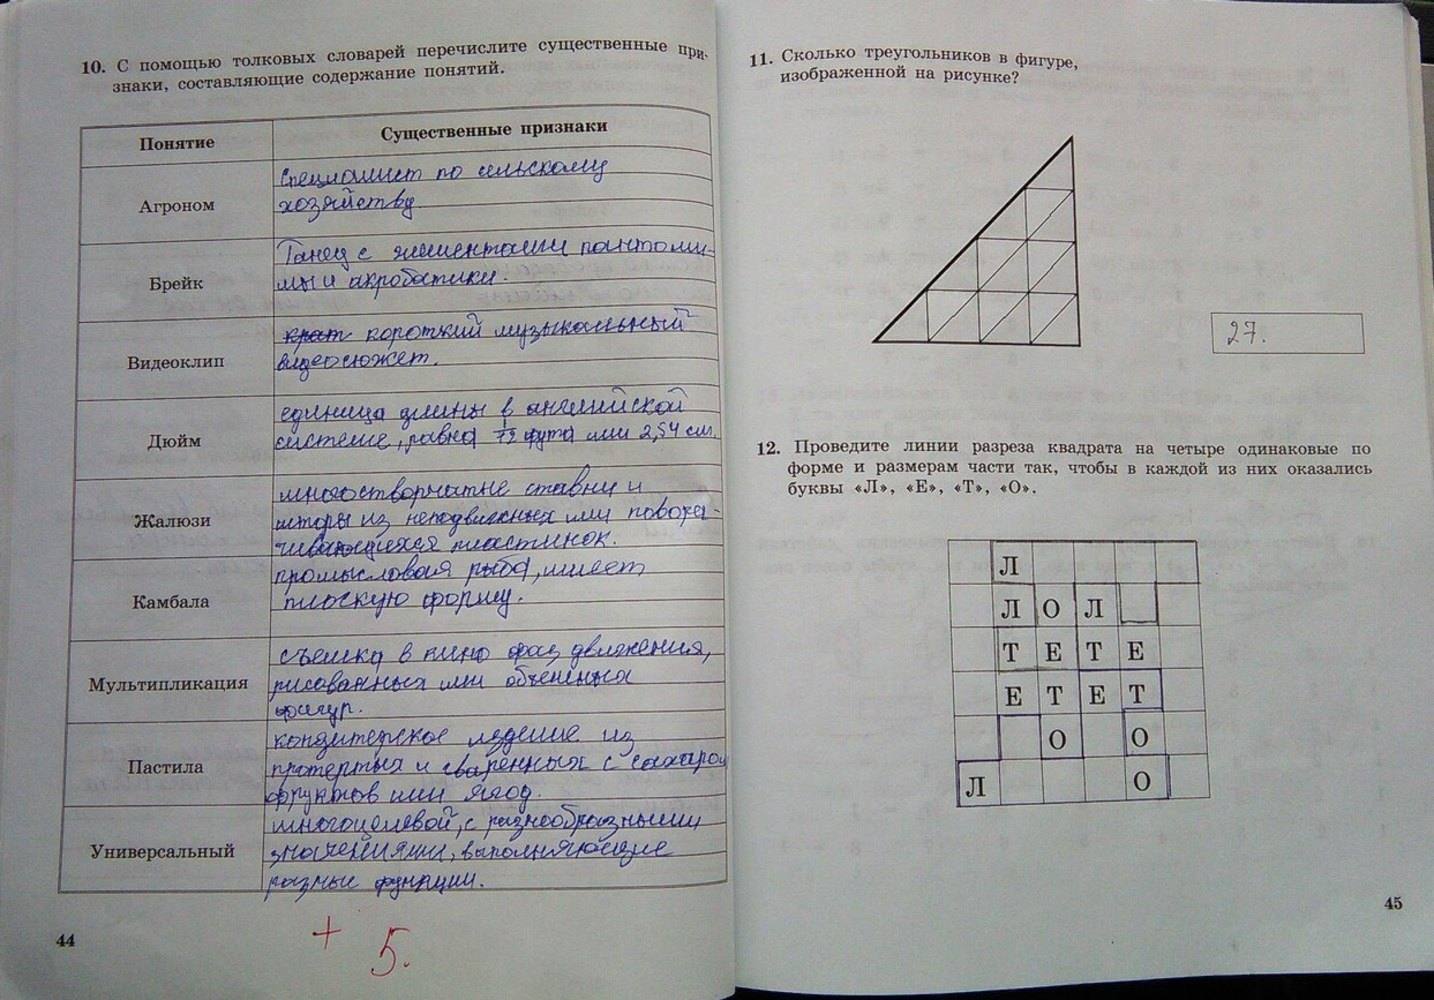 10. С помощью толковых словарей перечислите существенные при-
знаки, составляющие содержание понятий.
Понятие
Существенные признаки
Агроном
Специалист по сельскому
хозяйству
Брейк
Танец с элементами пантоми-
мы и акробатики.
Видеоклип
короткий музыкальный
видеосюжет.
Дюйм
единица длины в английской
системе, равна 1/12 фута или 2,54 см.
Жалюзи
многостворчатые ставни и
шторы из неподвижных или повора-
чивающихся пластинок.
Камбала
промысловая рыба, имеет
плоскую форму.
Мультипликация
съемка в кино фаз движения,
рисованных или объемных
фигур.
Пастила
кондитерское изделие из
протертых и сваренных с сахаром
фруктов или ягод.
Универсальный
многоцелевой, с разнообразными
значениями, выполняющие
разные функции.
+ 5.
44
11. Сколько треугольников в фигуре,
изображенной на рисунке?
27.
12. Проведите линии разреза квадрата на четыре одинаковые по
форме и размерам части так, чтобы в каждой из них оказались
буквы «Л», «Е», «Т», «О».
Л
Л О Л
Т Е Т Е
Е Т Е Т
О О
Л О
45